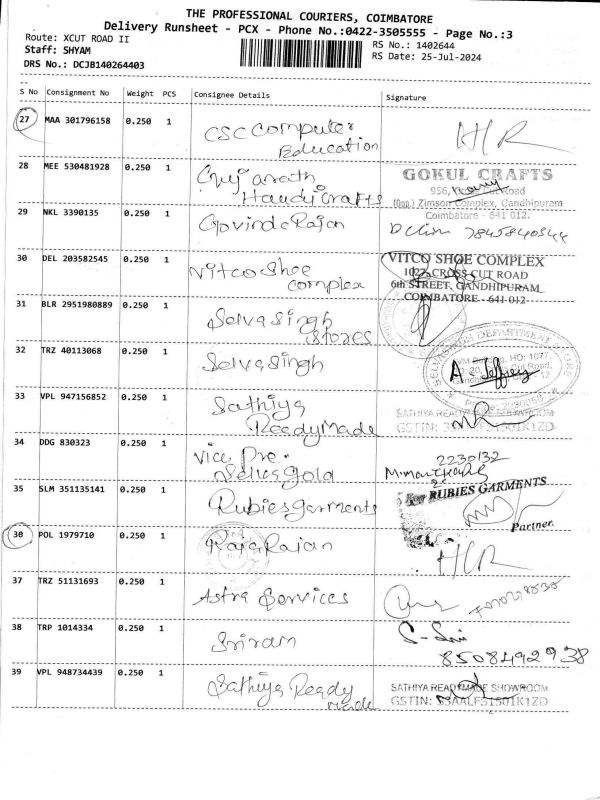 THE PROFESSIONAL COURIERS, COIMBATORE
Delivery Runsheet - PCX - Phone No.:0422-3505555 - Page No.:3
Route: XCUT ROAD II
RS No.: 1402644
Staff: SHYAM
RS Date: 25-Jul-2024
DRS No.: DCJB140264403
S No Consignment No Weight PCS Consignee Details Signature
27 MAA 301796158 0.250 1 CSC Computer Education HLR
28 MEE 530481928 0.250 1 Gujarath Handy Crafts
GOKUL CRAFTS
956, Road
(Opp.) Zimson Complex, Gandhipuram
Coimbatore - 641 012.
29 NKL 3390135 0.250 1 Govinda Rajan
30 DEL 203582545 0.250 1 Vitco Shoe Complex
VITCO SHOE COMPLEX
1022, CROSS CUT ROAD
6th STREET, GANDHIPURAM,
COIMBATORE - 641 012
31 BLR 2951980889 0.250 1 Selva Singh Stores
32 TRZ 40113068 0.250 1 Selva Singh
A. Jeffrey
33 VPL 947156852 0.250 1 Sathiya Ready Made
SATHIYA READYMADE SHOWROOM
34 DDG 830323 0.250 1 Vice Pre.
2230132
35 SLM 351135141 0.250 1 Rubies garments
RUBIES GARMENTS
Partner.
36 POL 1979710 0.250 1 Raja Rajan HLR
37 TRZ 51131693 0.250 1 Astra Services
38 TRP 1014334 0.250 1 Sriram
8508492938
39 VPL 948734439 0.250 1 Sathiya Ready Made
SATHIYA READYMADE SHOWROOM
GSTIN: 33AALFS1501K1ZD